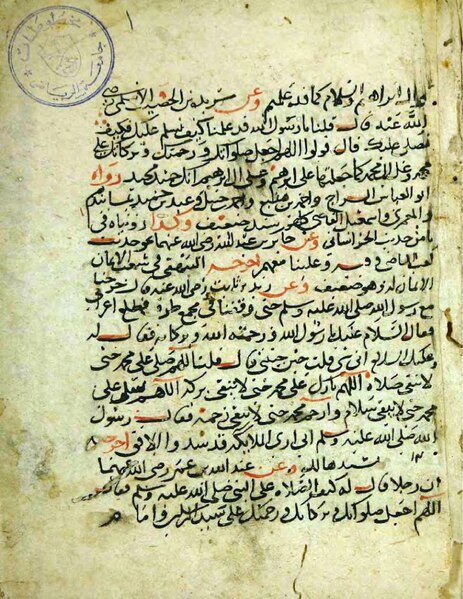 وال ابراهيم والسلام كما قد علمتم وعن بريدة بن الحصيب الاسلمي رضي
الله عنه قال قلنا يا رسول الله قد علمنا كيف نسلم عليك فكيف
نصلي عليك قال قولوا اللهم اجعل صلواتك ورحمتك وبركاتك على
محمد وعلى ال محمد كما جعلتها على ابراهيم وعلى ال ابراهيم انك حميد مجيد رواه
ابو العباس السراج واحمد بن منيع واحمد بن حنبل وعبد بن حميد
والمعمري واسمعيل القاضي كلهم بسند ضعيف وكذا رويناه في
من حديث الخراساني وعن جابر بن عبد الله رضي الله عنهما نحو حديث
وفيه وعلينا معهم اخرجه البيهقي في شعب الايمان
وهو ضعيف وعن زيد بن ثابت رضي الله عنه قال خرجنا
مع رسول الله صلى الله عليه وسلم حتى وقفنا في مجمع طرق فطلع اعرابي
فقال السلام عليك يا رسول الله ورحمة الله وبركاته فقال له
وعليك السلام اي شي قلت حين جيتني قال قلت اللهم صل على محمد حتى
لا تبقى صلاة اللهم بارك على محمد حتى لا تبقى بركة اللهم سلم على
محمد حتى لا يبقى سلام وارحم محمد حتى لا تبقى رحمة فقال رسول
الله صلى الله عليه وسلم اني ارى الملايكة قد سدوا الافق اخرجه
وعن عبد الله بن عمر رضي الله عنهما
ان رجلا قال له كيف الصلاة على النبي صلى الله عليه وسلم فقال
اللهم اجعل صلواتك وبركاتك ورحمتك على سيد المرسلين وامام